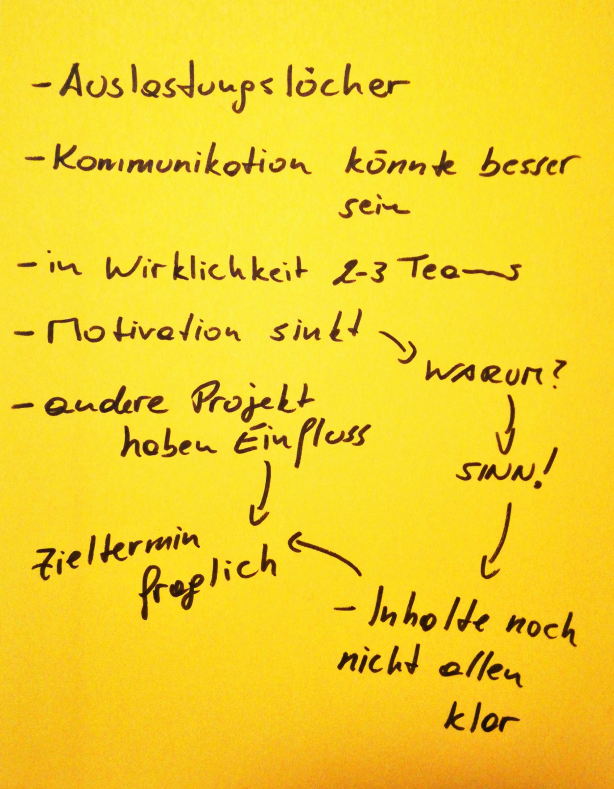 - Auslastungslöcher
- Kommunikation könnte besser
sein
- in Wirklichkeit 2-3 Teams
- Motivation sinkt
WARUM?
SINN!
- andere Projekt
haben Einfluss
Zieltermin
fraglich
- Inhalte noch
nicht allen
klar